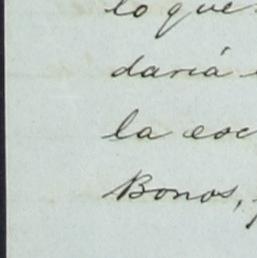 lo que
daría
la esc
Bonos,